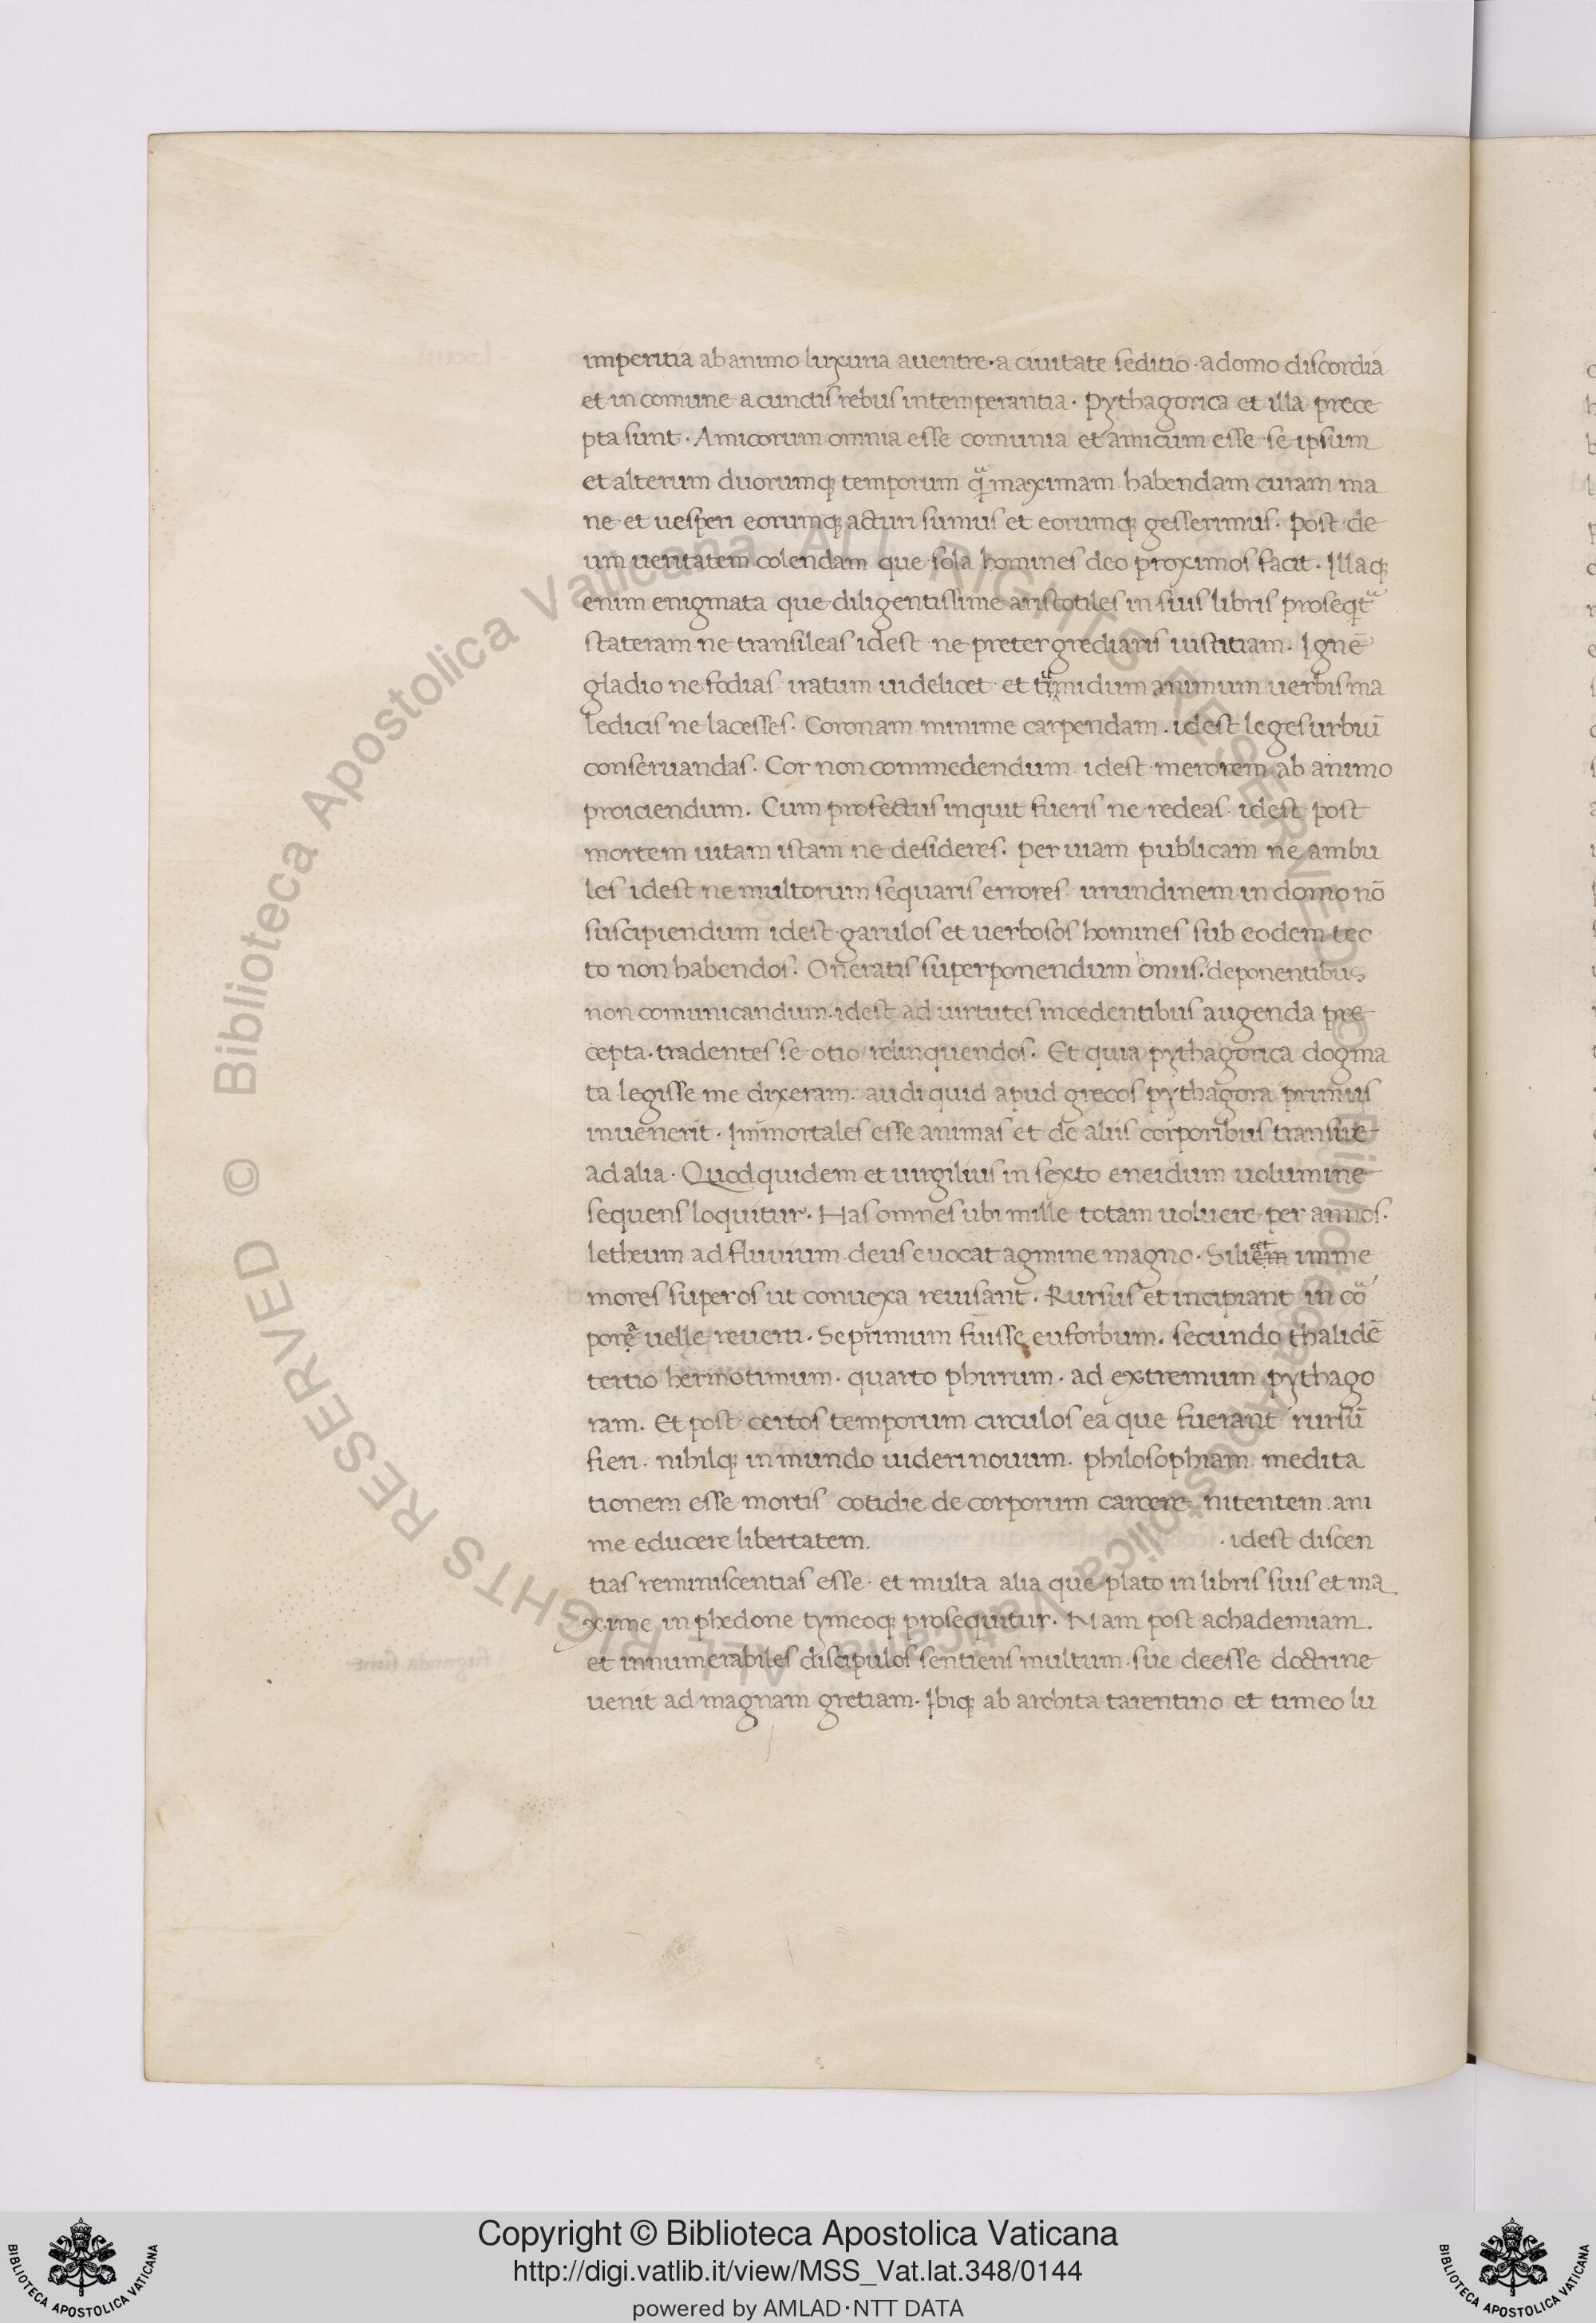 imperitia ab animo luxuria a uentre· a ciuitate seditio· a domo discordia
et in comune a cunctis rebus intemperantia· Pythagorica et illa prece
pta sunt· Amicorum omnia esse comunia et amicum esse se ipsum
et alterum duorumq; temporum maximam habendam curam ma
ne et uesperi eorumq; acturi sumus et eorumq; gesserimus· Post de
um ueritatem colendam que sola homines deo proximos facit· Illaq;
enim enigmata que diligentissime aristotiles in suis libris
stateram ne transileas idest ne preter grediaris iustitiam· Ignē
gladio ne fodias iratum uidelicet et animum uerbis ma
ledicis ne lacesses· Coronam minime carpendam· idest leges urbiū
conseruandas· Cor non commedendum idest merorem ab animo
proiciendum· Cum profectus inquit fueris ne redeas· idest post
mortem uitam istam ne desideres· per uiam publicam ne ambu
les idest ne multorum sequaris errores irundinem in domo nō
suscipiendum idest garulos et uerbosos homines sub eodem tec
to non habendos· Oneratis superponendum onus· deponentibus
non comunicandum· idest ad uirtutes incedentibus augenda pre
cepta· tradentes se otio relinquendos· Et quia pythagorica dogma
ta legisse me dixeram· audi quid apud grecos pythagora primus
inuenerit· Immortales esse animas et de aliis corporibus transire
ad alia· Quod quidem et uirgilius in sexto eneidum uolumine
sequens loquitur· Has omnes ubi mille totam uoluere per annos·
letheum ad fluuium deus euocat agmine magno· imme
mores superos ut conuexa reuisant· Rursus et incipiant in
uelle reuerti· Se primum fuisse euforbum· secundo thalidē
tertio hermotimum· quarto phirrum· ad extremum pythago
ram. Et post certos temporum circulos ea que fuerant rursū
fieri· nihilq; in mundo uideri nouum· philosophiam medita
tionem esse mortis cotidie de corporum carcere nitentem ani
me educere libertatem. · idest discen
tias reminiscentias esse· et multa alia que plato in libris suis et ma
xime in phedone tymeoq; prosequitur· Nam post achademiam.
et innumerabiles discipulos sentiens multum· sue deesse doctrine
uenit ad magnam gretiam· Ibiq; ab archita tarentino et timeo lu
© Biblioteca Apostolica Vaticana ALL RIGHTS RESERVED
© Biblioteca Apostolica Vaticana ALL RIGHTS RESERVED
Copyright © Biblioteca Apostolica Vaticana
http://digi.vatlib.it/view/MSS_Vat.lat.348/0144
powered by AMLAD·NTT DATA
BIBLIOTECA APOSTOLICA VATICANA
BIBLIOTECA APOSTOLICA VATICANA